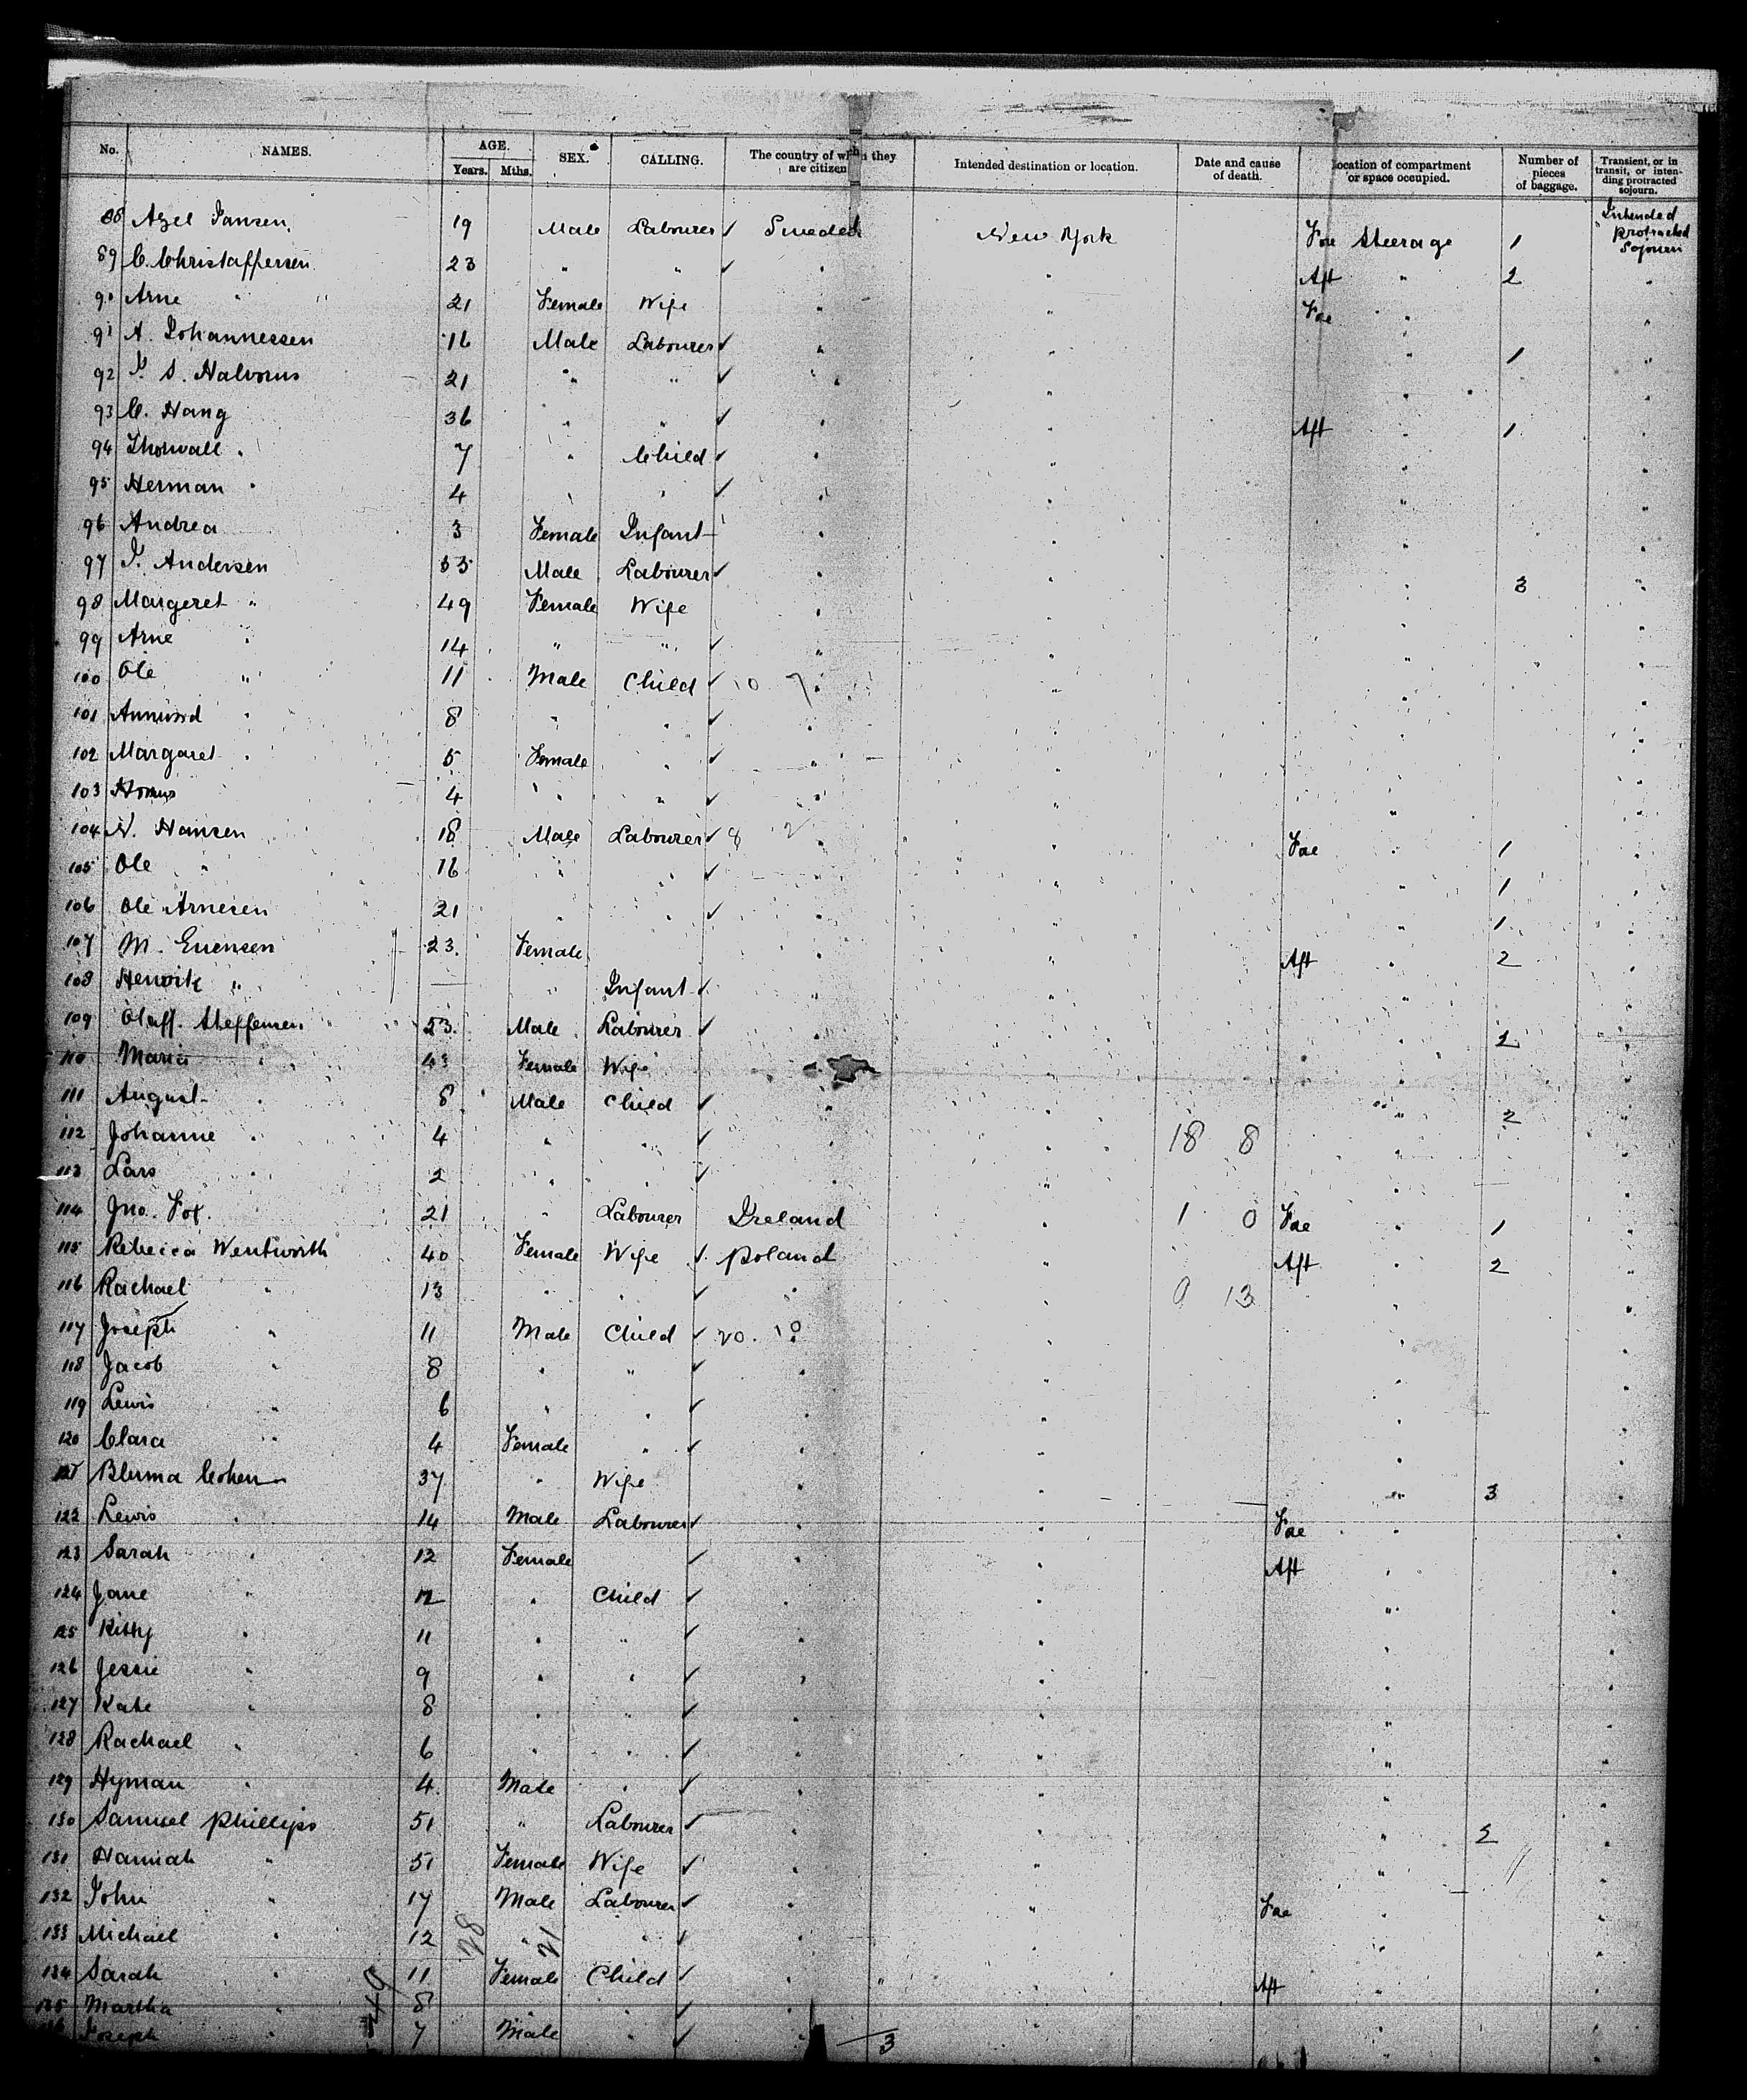 No. NAMES. AGE. Years. Mths. SEX. CALLING. The country of which they are citizens Intended destination or location. Date and cause of death. Location of compartment or space occupied. Number of pieces of baggage. Transient, or in transit, or intending protracted sojourn.
88 Axel Jansen. 19 Male Labourer ✓ Sweden New York Fore Steerage 1 Intended protracted Sojourn
89 C. Christaffersen 23 " " ✓ " " Aft " 2 "
90 Arne " 21 Female Wife " " Fore " "
91 A. Johannessen 16 Male Labourer ✓ " " " 1 "
92 21 " " ✓ " " " "
93 C. Hang 36 " " ✓ " " Aft " 1 "
94 Thorwall " 7 " Child ✓ " " " "
95 Herman " 4 " " ✓ " " " "
96 Andrea 3 Female Infant " " " "
97 J. Andersen 53 Male Labourer ✓ " " " 3 "
98 Margeret " 49 Female Wife " " " "
99 Arne " 14 " " ✓ " " " "
100 Ole " 11 Male Child ✓ 10 7 " " " "
101 " 8 " " ✓ " " " "
102 Margaret " 5 Female " ✓ " " " "
103 4 " " ✓ " " " "
104 N. Hansen 18 Male Labourer ✓ 8 2 " " Fore " 1 "
105 Ole " 16 " " ✓ " " " 1 "
106 Ole Arnesen 21 " " ✓ " " " 1 "
107 M. Evensen 23 Female " Aft " 2 "
108 " — " Infant ✓ " " " "
109 Olaff. Steffensen 53 Male Labourer ✓ " " " 2 "
110 Maria " 43 Female Wife " " " "
111 August " 8 Male Child ✓ " " " 2 "
112 Johanne " 4 " " ✓ " " 18 8 " "
113 Lars " 2 " " ✓ " " " "
114 Jno. Fox. 21 " Labourer Ireland " 1 0 Fore " 1 "
115 Rebecca Wentworth 40 Female Wife ✓ Poland " Aft " 2 "
116 Rachael " 13 " " ✓ " " 0 13 " "
117 Joseph " 11 Male Child ✓ 20 10 " " " "
118 Jacob " 8 " " ✓ " " " "
119 Lewis " 6 " " ✓ " " " "
120 Clara " 4 Female " ✓ " " " "
121 Bluma Cohen 37 " Wife " " " 3 "
122 Lewis " 14 Male Labourer ✓ " " Fore " "
123 Sarah " 12 Female ✓ " " Aft " "
124 Jane " 12 " Child ✓ " " " "
125 Kitty " 11 " " ✓ " " " "
126 Jessie " 9 " " ✓ " " " "
127 Kate " 8 " " ✓ " " " "
128 Rachael " 6 " " ✓ " " " "
129 Hyman " 4 Male " ✓ " " " "
130 Samuel Phillips 51 " Labourer ✓ " " " 2 "
131 Hannah " 51 Female Wife ✓ " " " "
132 John " 17 Male Labourer ✓ " " Fore " "
133 Michael " 12 " " ✓ " " " "
28 21
134 Sarah " 11 Female Child ✓ " " Aft " "
135 Martha " 8 " " ✓ " " " "
136 Joseph " 7 Male " ✓ " " "
3